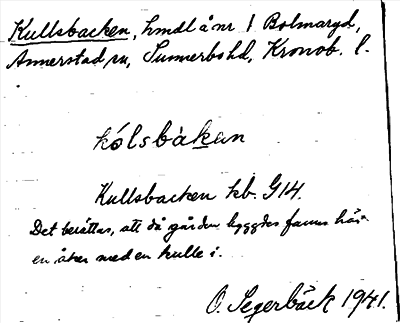 Kullsbacken, hmdl å nr 1 Bolmaryd,
Annerstad sn, Sunnerbo hd, Kronob. l.
kólsbàkan
Kullsbacken kb. G14.
Det berättas, att då gården byggdes fanns här
en åker med en kulle i.
O. Segerbäck 1941.